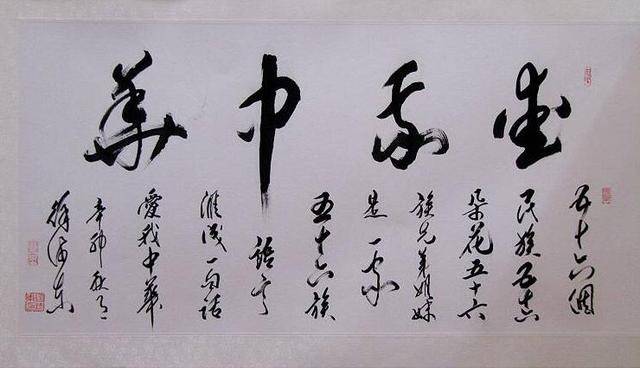 愛我中華
五十六個
民族五十六
朵花五十六
族兄弟姐妹
是一家
五十六族
語言
滙成一句話
愛我中華
辛卯秋月